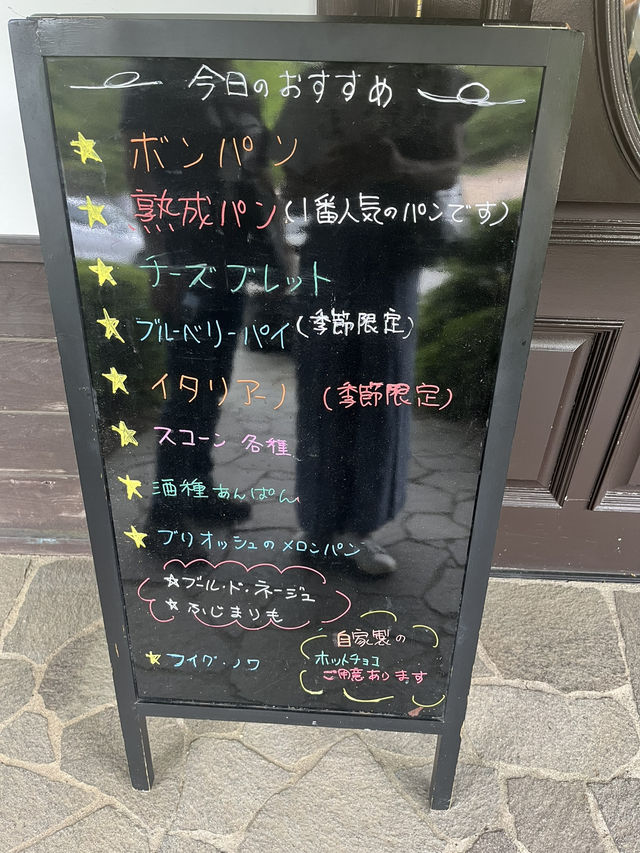 今日のおすすめ
★ ボンパン
★ 熟成パン(1番人気のパンです)
★ チーズブレット
★ ブルーベリーパイ(季節限定)
★ イタリアーノ (季節限定)
★ スコーン 各種
★ 酒種あんぱん
★ ブリオッシュのメロンパン
☆ブール・ド・ネージュ
☆ ふじまりも
★ フイグ・ノワ
自家製の
ホットチョコ
ご用意あります